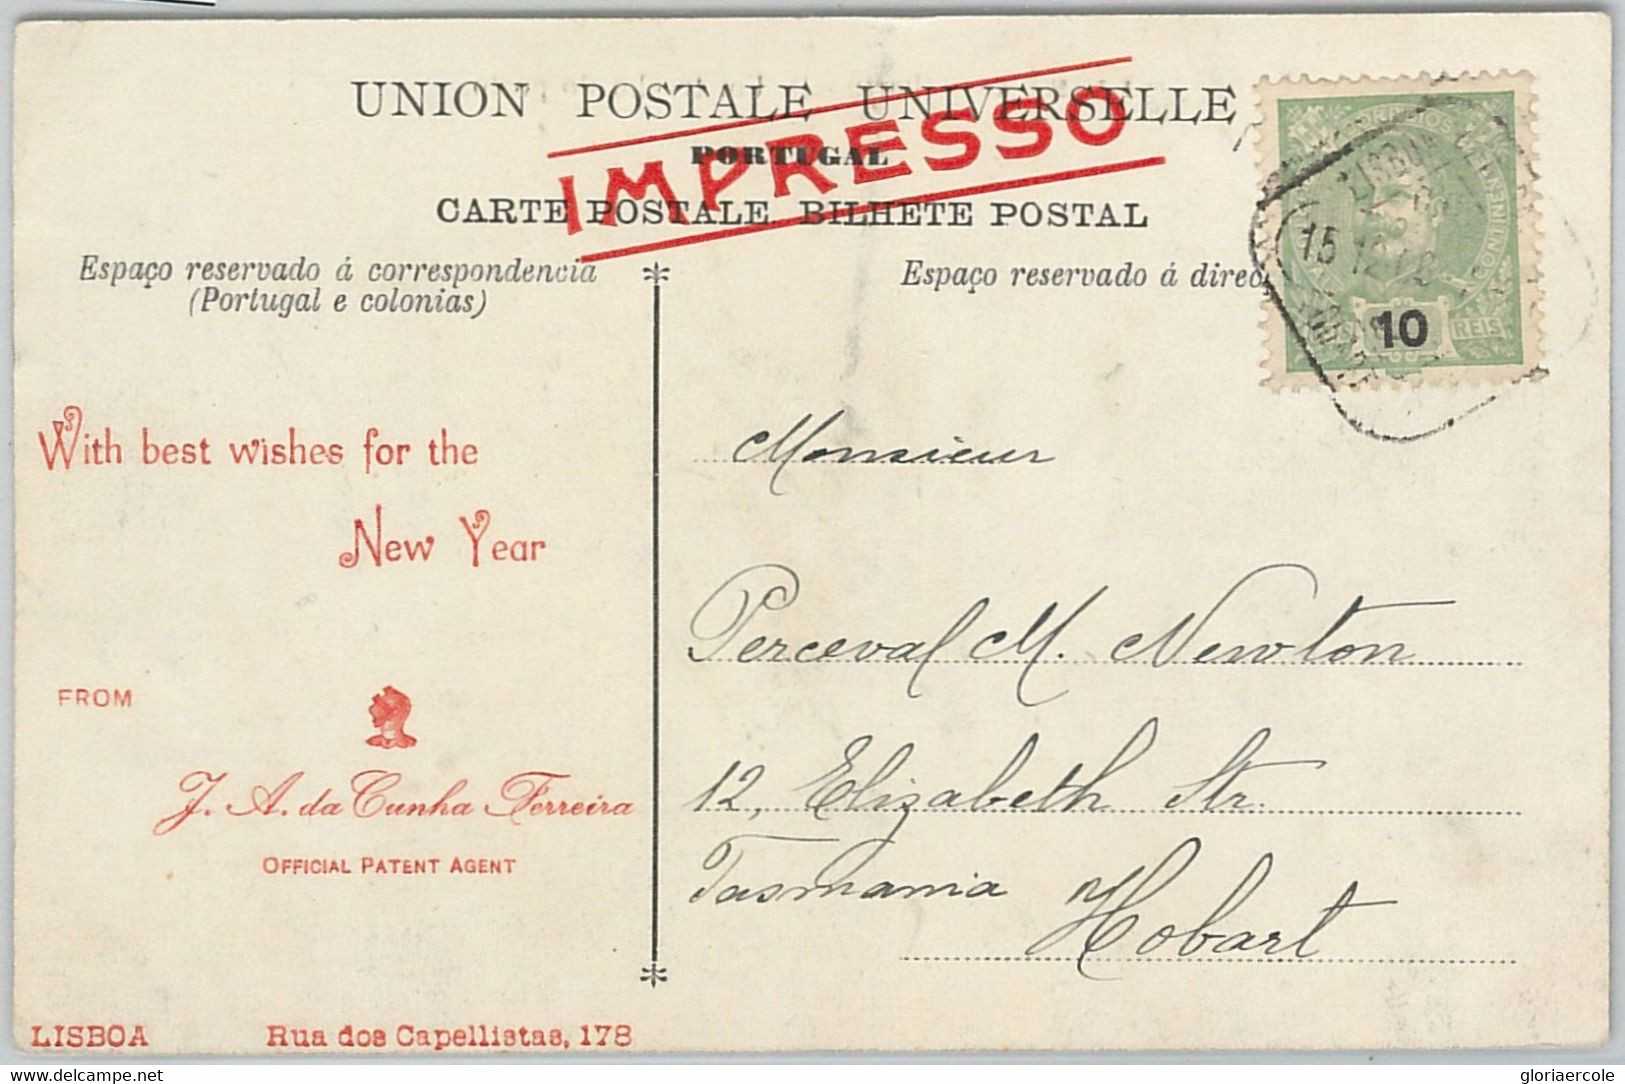 UNION POSTALE UNIVERSELLE
PORTUGAL
IMPRESSO
CARTE POSTALE. BILHETE POSTAL
Espaço reservado á correspondencia
(Portugal e colonias)
Espaço reservado á
CORREIOS
10
REIS
15
With best wishes for the
New Year
FROM
J. A. da Cunha Ferreira
OFFICIAL PATENT AGENT
LISBOA Rua dos Capellistas, 178
Monsieur
Perceval M. Newton
12, Elizabeth Str.
Tasmania
Hobart
delcampe.net
gloriaercole